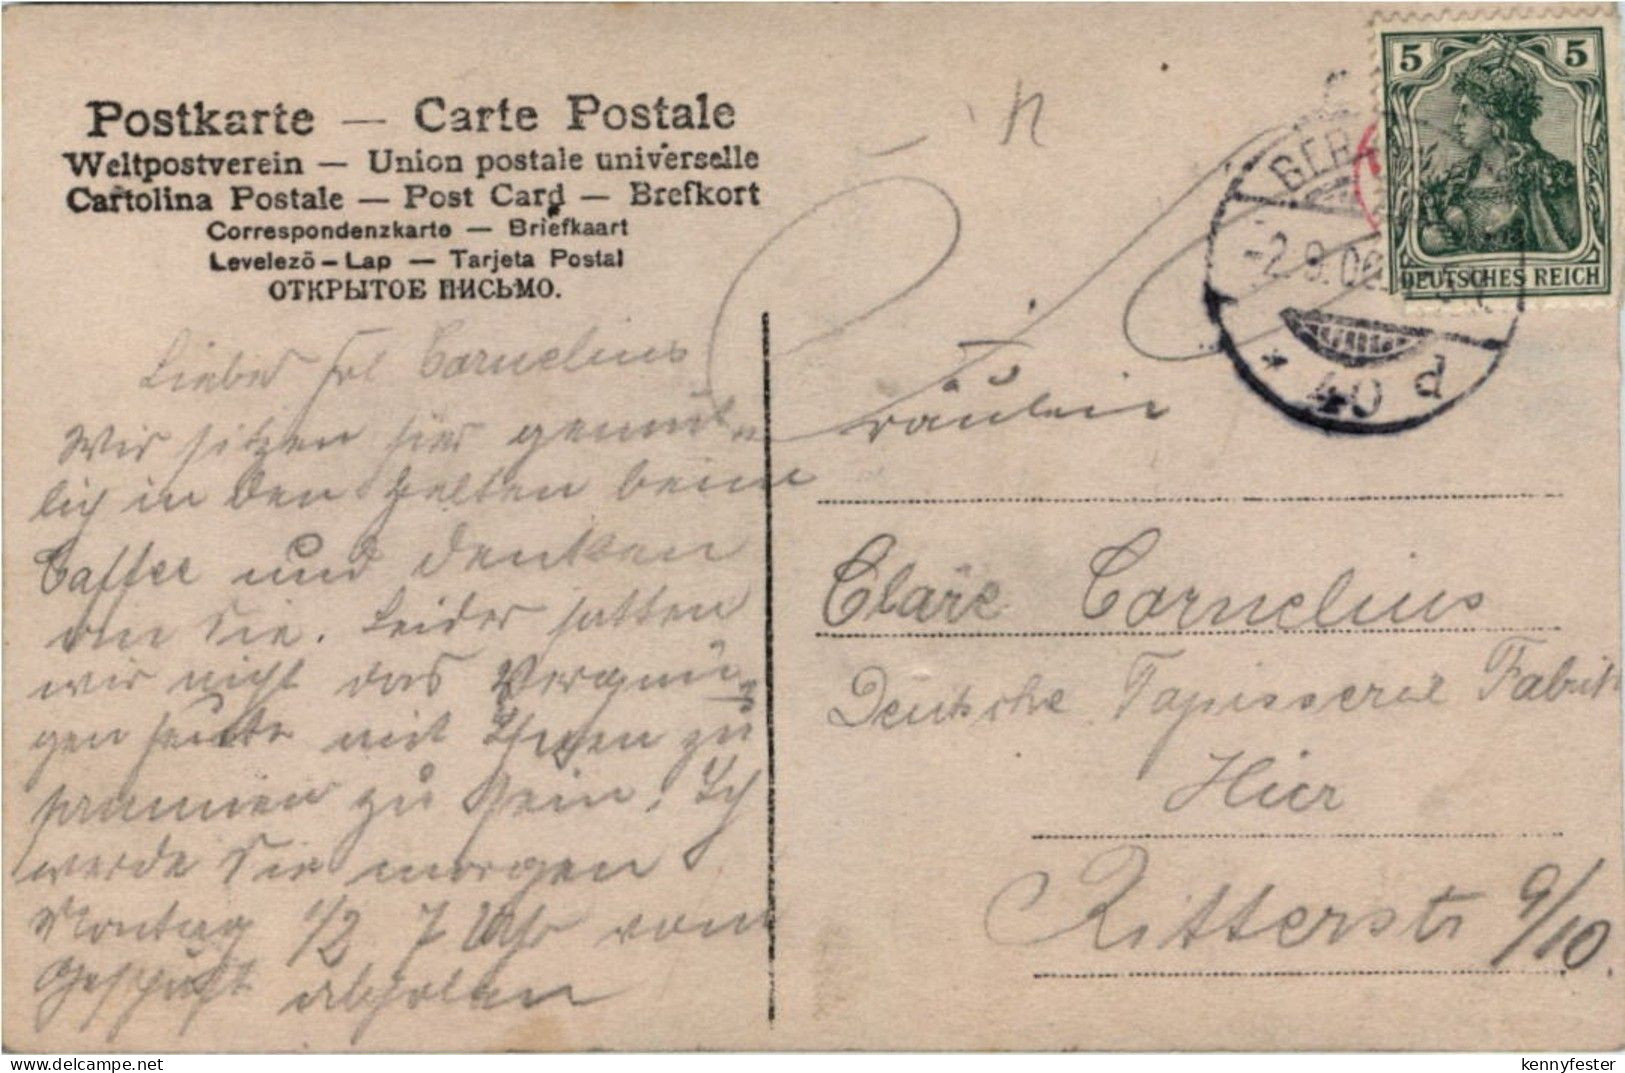 Postkarte — Carte Postale
Weltpostverein — Union postale universelle
Cartolina Postale — Post Card — Brefkort
Correspondenzkarte — Briefkaart
Levelezõ – Lap — Tarjeta Postal
ОТКРЫТОЕ ПИСЬМО.
5 5
DEUTSCHES REICH
BER
-2.9.06
* 40 d
Liebes Frl Cornelius
Wir sitzen hier gemüt-
lich in den Zelten beim
Caffee und denken
an Sie. Leider hatten
wir nicht das Vergnü-
gen heute mit Ihnen zu
zu sein. Ich
werde Sie morgen
Montag 1/2 7 Uhr vom
Geschäft abholen
Fräulein
Cläre Cornelius
Deutsche Tapisserie Fabrik
Hier
Ritterstr 9/10.
kennyfester